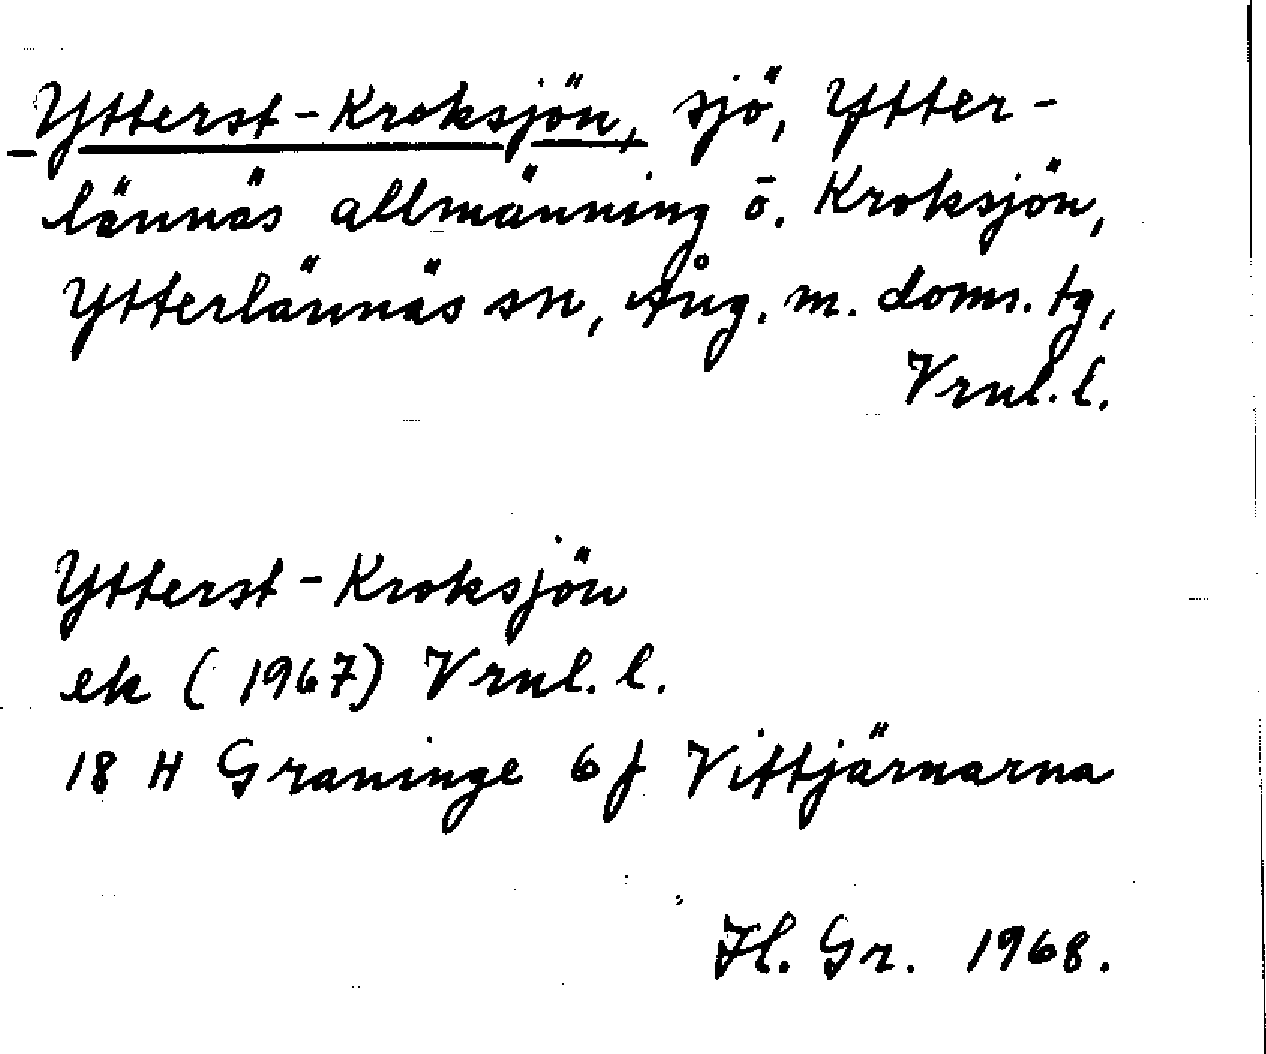 Ytterst-Kroksjön, sjö, Ytter-
lännäs allmänning ö. Kroksjön,
Ytterlännäs sn, Ång. m. doms. tg,
Vrnl. l.
Ytterst-Kroksjön
ek (1967) Vrnl. l.
18 H Graninge 6 f Vittjärnarna
Hl. Gr. 1968.